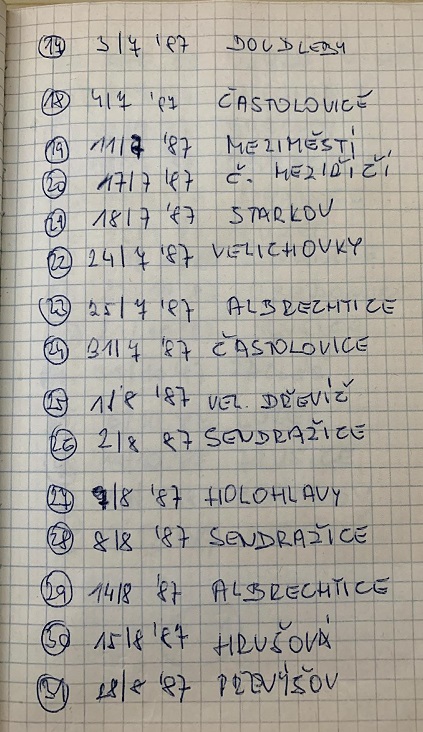 17 3/7 '87 DOUDLEBY
18 4/7 '87 ČASTOLOVICE
19 11/7 '87 MEZIMĚSTÍ
20 17/7 '87 Č. MEZIŘÍČÍ
21 18/7 '87 STARKOV
22 24/7 '87 VELICHOVKY
23 25/7 '87 ALBRECHTICE
24 31/7 '87 ČASTOLOVICE
25 1/8 '87 VEL. DŘEVÍČ
26 2/8 87 SENDRAŽICE
27 7/8 '87 HOLOHLAVY
28 8/8 '87 SENDRAŽICE
29 14/8 '87 ALBRECHTICE
30 15/8 '87 HRUŠOVÁ
31 28/8 '87 PŘEVÝŠOV